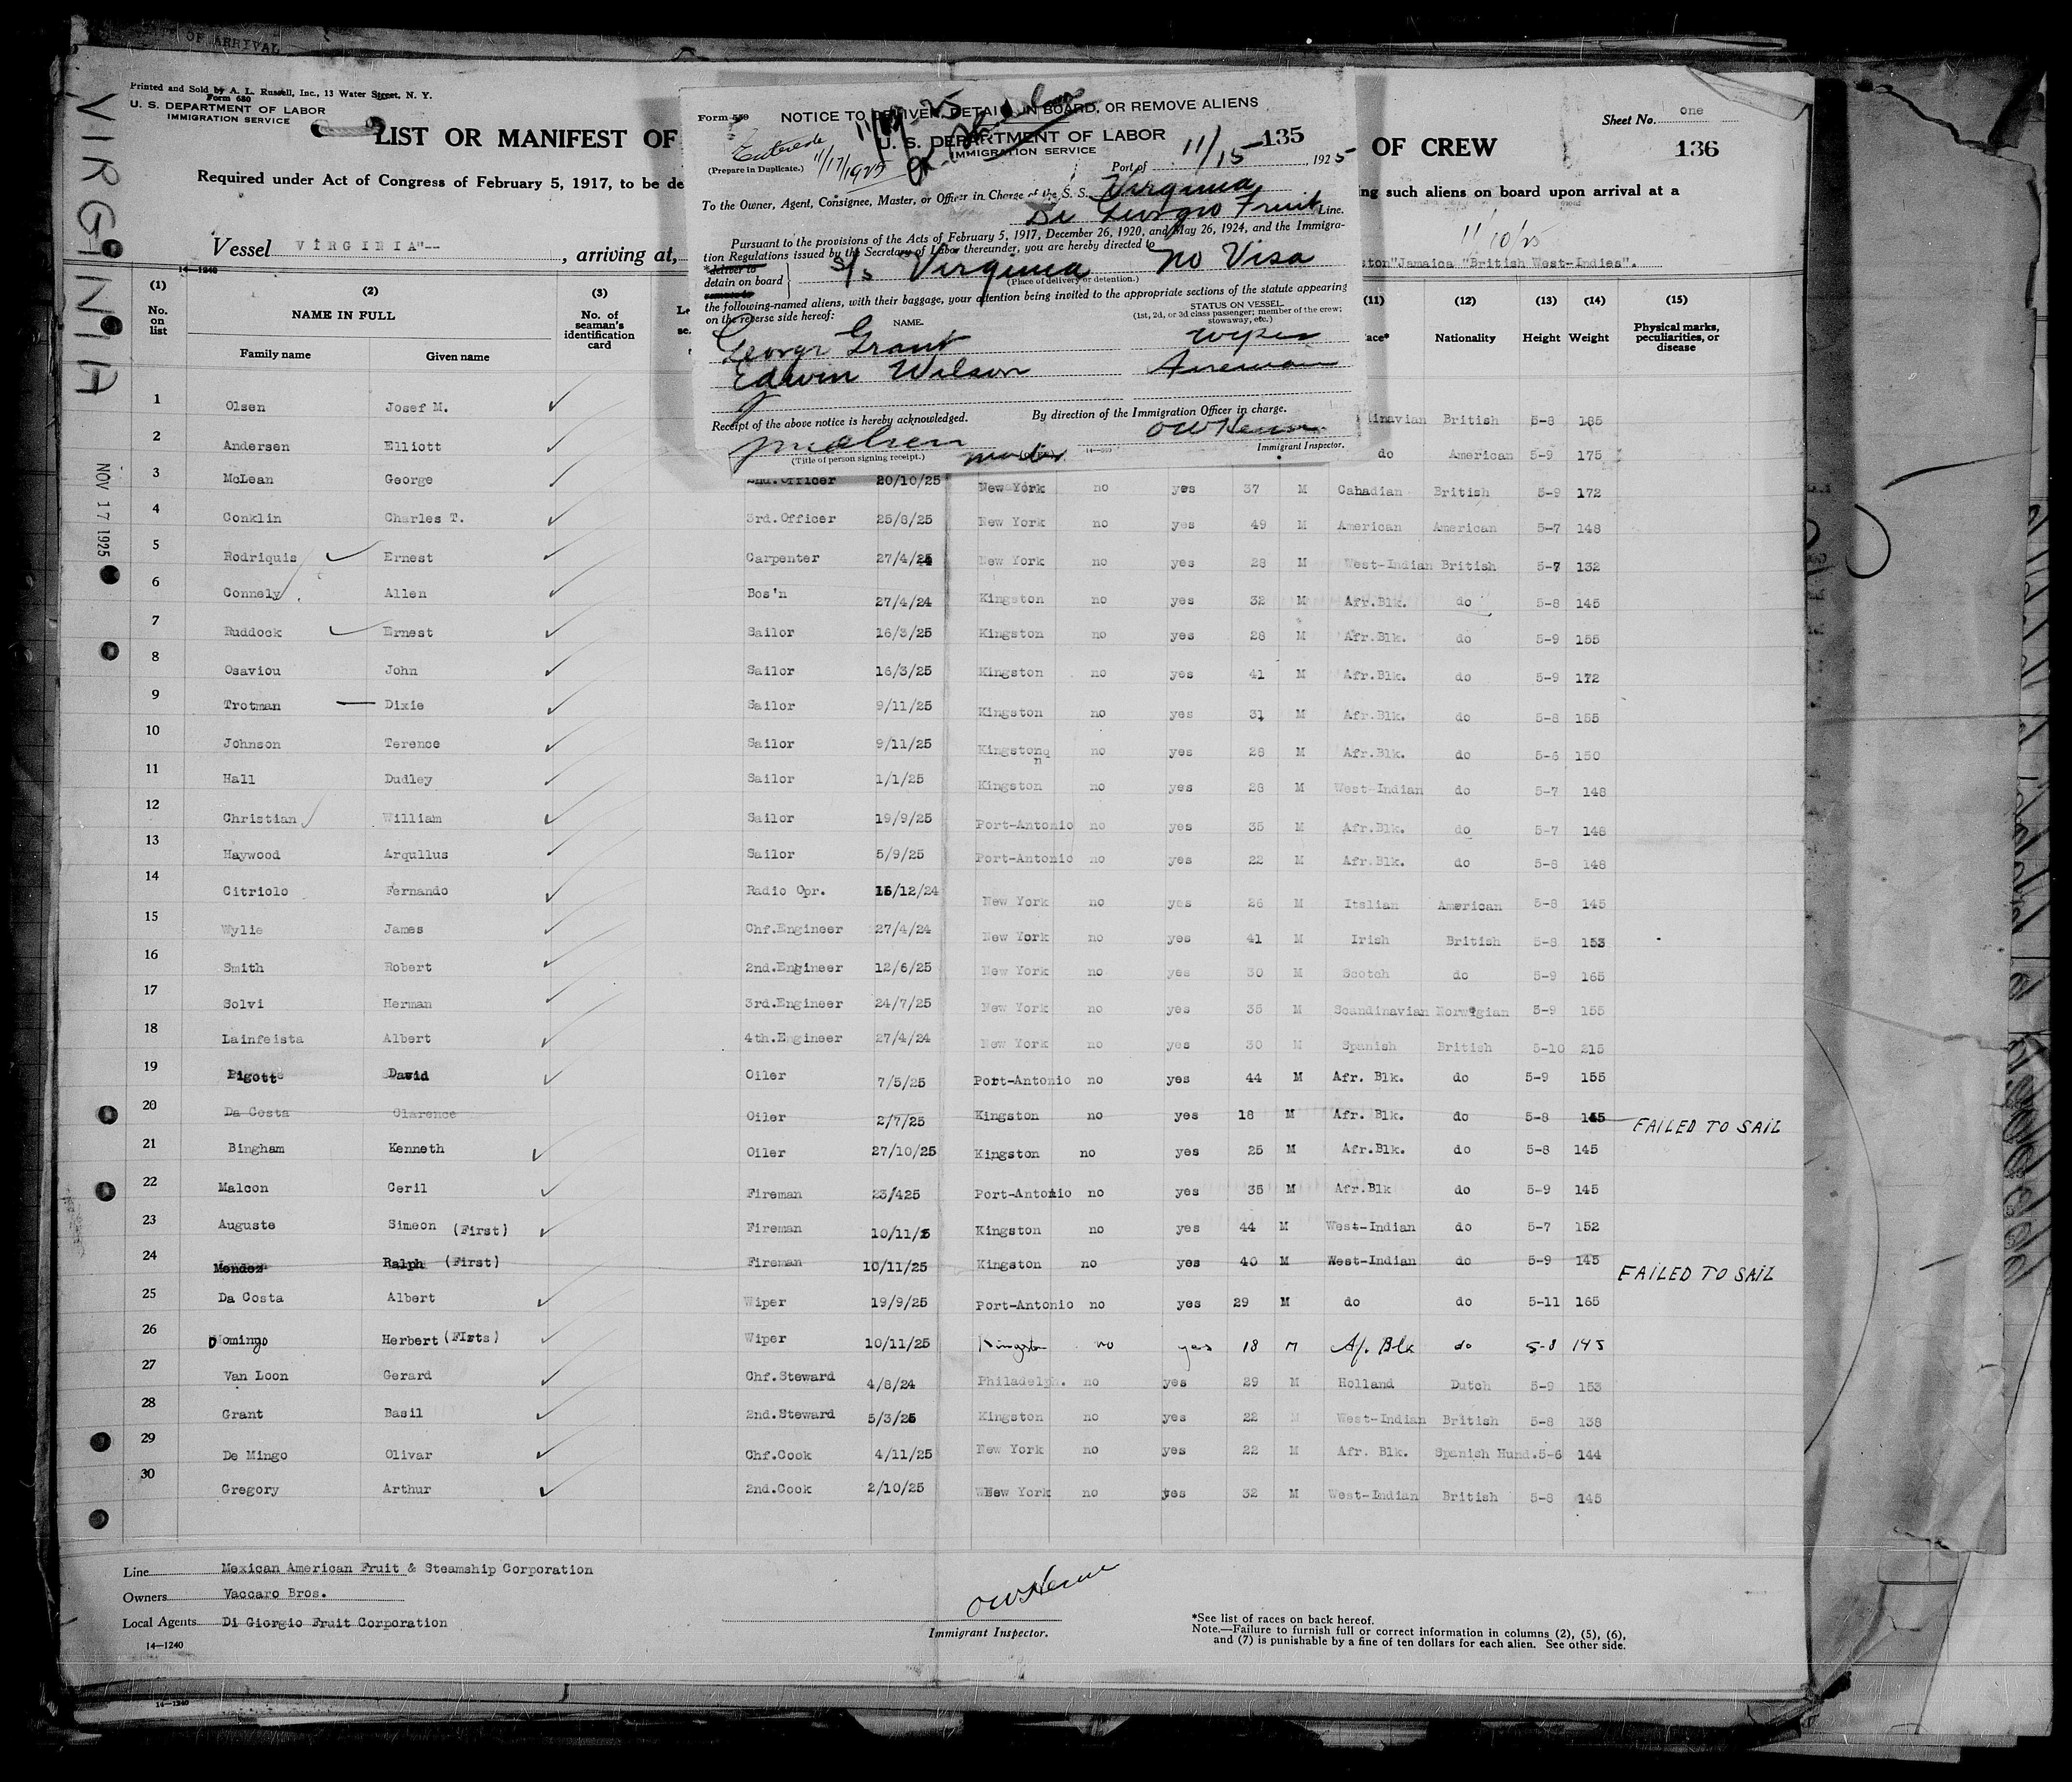 OF ARRIVAL
VIRGINIA
NOV 17 1925
Printed and Sold by A. L. Russell, Inc., 13 Water Street, N. Y.
Form 680
U. S. DEPARTMENT OF LABOR
IMMIGRATION SERVICE
LIST OR MANIFEST OF
OF CREW
Sheet No. one
136
Required under Act of Congress of February 5, 1917, to be de
ng such aliens on board upon arrival at a
Vessel VIRGINIA"--, arriving at,
11/10/25
ston"Jamaica "British West-Indies".
14-1240
Form 550
NOTICE TO DELIVER, DETAIN ON BOARD, OR REMOVE ALIENS
U. S. DEPARTMENT OF LABOR
135
IMMIGRATION SERVICE
(Prepare in Duplicate.)
11/17/1925
Port of 11/15, 1925
To the Owner, Agent, Consignee, Master, or Officer in Charge of the S. S. Virginia
Di Giorgio Fruit Line.
Pursuant to the provisions of the Acts of February 5, 1917, December 26, 1920, and May 26, 1924, and the Immigra-
tion Regulations issued by the Secretary of Labor thereunder, you are hereby directed to
*deliver to
detain on board
S/s Virginia No Visa
(Place of delivery or detention.)
the following-named aliens, with their baggage, your attention being invited to the appropriate sections of the statute appearing
on the reverse side hereof:
NAME.
STATUS ON VESSEL
(1st, 2d, or 3d class passenger; member of the crew; stowaway, etc.)
George Grant Wiper
Edwin Wilson Fireman
Receipt of the above notice is hereby acknowledged.
By direction of the Immigration Officer in charge.
(Title of person signing receipt.)
Master
14-660
Immigrant Inspector.
(1) (2) (3) (11) (12) (13) (14) (15)
No. on list NAME IN FULL No. of seaman's identification card
Family name Given name
ace* Nationality Height Weight Physical marks, peculiarities, or disease
1 Olsen Josef M. inavian British 5-8 185
2 Andersen Elliott do American 5-9 175
3 McLean George 2nd.Officer 20/10/25 New York no yes 37 M Cahadian British 5-9 172
4 Conklin Charles T. 3rd.Officer 25/8/25 New York no yes 49 M American American 5-7 148
5 Rodriquis Ernest Carpenter 27/4/24 New York no yes 28 M West-Indian British 5-7 132
6 Connely Allen Bos'n 27/4/24 Kingston no yes 32 M Afr.Blk. do 5-8 145
7 Ruddock Ernest Sailor 16/3/25 Kingston no yes 28 M Afr.Blk. do 5-9 155
8 Osaviou John Sailor 16/3/25 Kingston no yes 41 M Afr.Blk. do 5-9 172
9 Trotman Dixie Sailor 9/11/25 Kingston no yes 31 M Afr.Blk. do 5-8 155
10 Johnson Terence Sailor 9/11/25 Kingston no yes 28 M Afr.Blk. do 5-6 150
11 Hall Dudley Sailor 1/1/25 Kingston no yes 28 M West-Indian do 5-7 148
12 Christian William Sailor 19/9/25 Port-Antonio no yes 35 M Afr.Blk. do 5-7 148
13 Haywood Arqullus Sailor 5/9/25 Port-Antonio no yes 22 M Afr.Blk. do 5-8 148
14 Citriolo Fernando Radio Opr. 15/12/24 New York no yes 26 M Italian American 5-8 145
15 Wylie James Chf.Engineer 27/4/24 New York no yes 41 M Irish British 5-8 153
16 Smith Robert 2nd.Engineer 12/6/25 New York no yes 30 M Scotch do 5-9 165
17 Solvi Herman 3rd.Engineer 24/7/25 New York no yes 35 M Scandinavian Norwegian 5-9 155
18 Lainfeista Albert 4th.Engineer 27/4/24 New York no yes 30 M Spanish British 5-10 215
19 Pigott David Oiler 7/5/25 Port-Antonio no yes 44 M Afr. Blk. do 5-9 155
20 Da Costa Clarence Oiler 2/7/25 Kingston no yes 18 M Afr. Blk. do 5-8 145 FAILED TO SAIL
21 Bingham Kenneth Oiler 27/10/25 Kingston no yes 25 M Afr.Blk. do 5-8 145
22 Malcon Ceril Fireman 23/425 Port-Antonio no yes 35 M Afr.Blk do 5-9 145
23 Auguste Simeon (First) Fireman 10/11/5 Kingston no yes 44 M West-Indian do 5-7 152
24 Mendez Ralph (First) Fireman 10/11/25 Kingston no yes 40 M West-Indian do 5-9 145 FAILED TO SAIL
25 Da Costa Albert Wiper 19/9/25 Port-Antonio no yes 29 M do do 5-11 165
26 Domingo Herbert (FIsts) Wiper 10/11/25 Kingston no yes 18 M Af. Blk do 5-8 145
27 Van Loon Gerard Chf.Steward 4/8/24 Philadelph. no yes 29 M Holland Dutch 5-9 153
28 Grant Basil 2nd.Steward 5/3/25 Kingston no yes 22 M West-Indian British 5-8 138
29 De Mingo Olivar Chf.Cook 4/11/25 New York no yes 22 M Afr. Blk. Spanish Hund. 5-6 144
30 Gregory Arthur 2nd.Cook 2/10/25 New York no yes 32 M West-Indian British 5-8 145
Line Mexican American Fruit & Steamship Corporation
Owners Vaccaro Bros.
Local Agents Di Giorgio Fruit Corporation
14-1240
Immigrant Inspector.
*See list of races on back hereof.
Note.—Failure to furnish full or correct information in columns (2), (5), (6),
and (7) is punishable by a fine of ten dollars for each alien. See other side.
14-1240